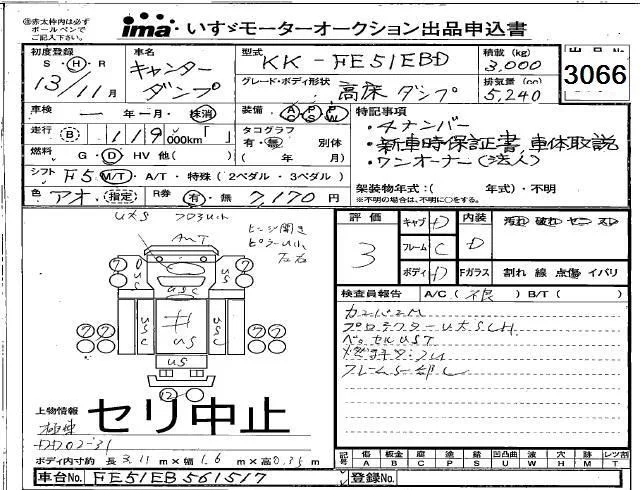 ㊟赤太枠内は必ず
ボールペンで
ご記入下さい。
ima いすゞモーターオークション出品申込書
初度登録 S・H・R 13/11月
車名 キャンター ダンプ
型式 KK-FE51EBD
グレード・ボディ形状 高床ダンプ
積載(kg) 3,000
排気量(cc) 5,240
出品No 3066
車検 ー年ー月・抹消
装備 AC PS PW
走行 B 119,000km「 」
タコグラフ 有・無 別体 ( 年 月)
特記事項
・4ナンバー
・新車時保証書,車体取説
・ワンオーナー(法人)
燃料 G・D HV 他( )
シフト F5 M/T・A/T・特殊(2ペダル・3ペダル)
色 アオ(指定) R券 有・無 7,170円
架装物年式:( 年式)・不明
※不明の場合は、不明に○をする。
UKS
ANT
ヒージ開き
左右
⑦ ⑦
US US
USC
USC 井 US USC
⑦⑦ ⑦⑦
US
⑫
評価 3
キャブ D
フレーム C
ボディ D
内装 D
汚れ 破れ セコ スレ
Fガラス 割れ 線 点傷 イバリ
検査員報告 A/C( 根 ) B/T( )
プロテクターUKSCH
フレームS部C
セリ中止
上物情報
極東
DD02-31
ボディ内寸約 長 3.11m×幅 1.6m×高 0.35m
記号 傷A 板金B 腐C 塗P 錆S 凹凸曲U 波W 穴H 跡X レツ割T
車台No. FE51EB561517
登録No.